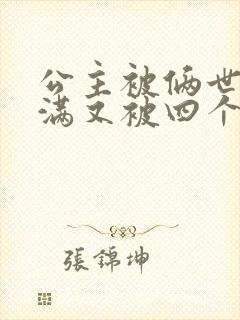 公主被俩世
满又被四个
張錦坤